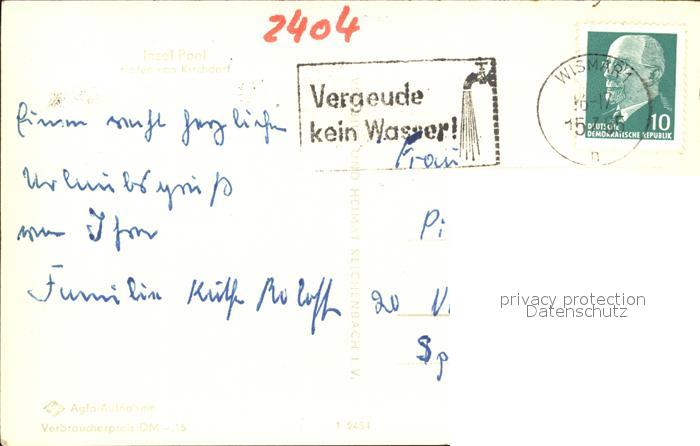 2404
Insel Poel
Hafen von Kirchdorf
Vergeude
kein Wasser!
WISMAR 1
16-17
15.
n
10
DEUTSCHE
DEMOKRATISCHE REPUBLIK
Einen recht herzlichen
Urlaubsgruß
von Ihrer
Familie Käthe Roloff
Frau
Pi
20 W
Sp
UND HEIMAT REICHENBACH I. V.
privacy protection
Datenschutz
Agfa-Aufnahme
Verbraucherpreis DM -,15